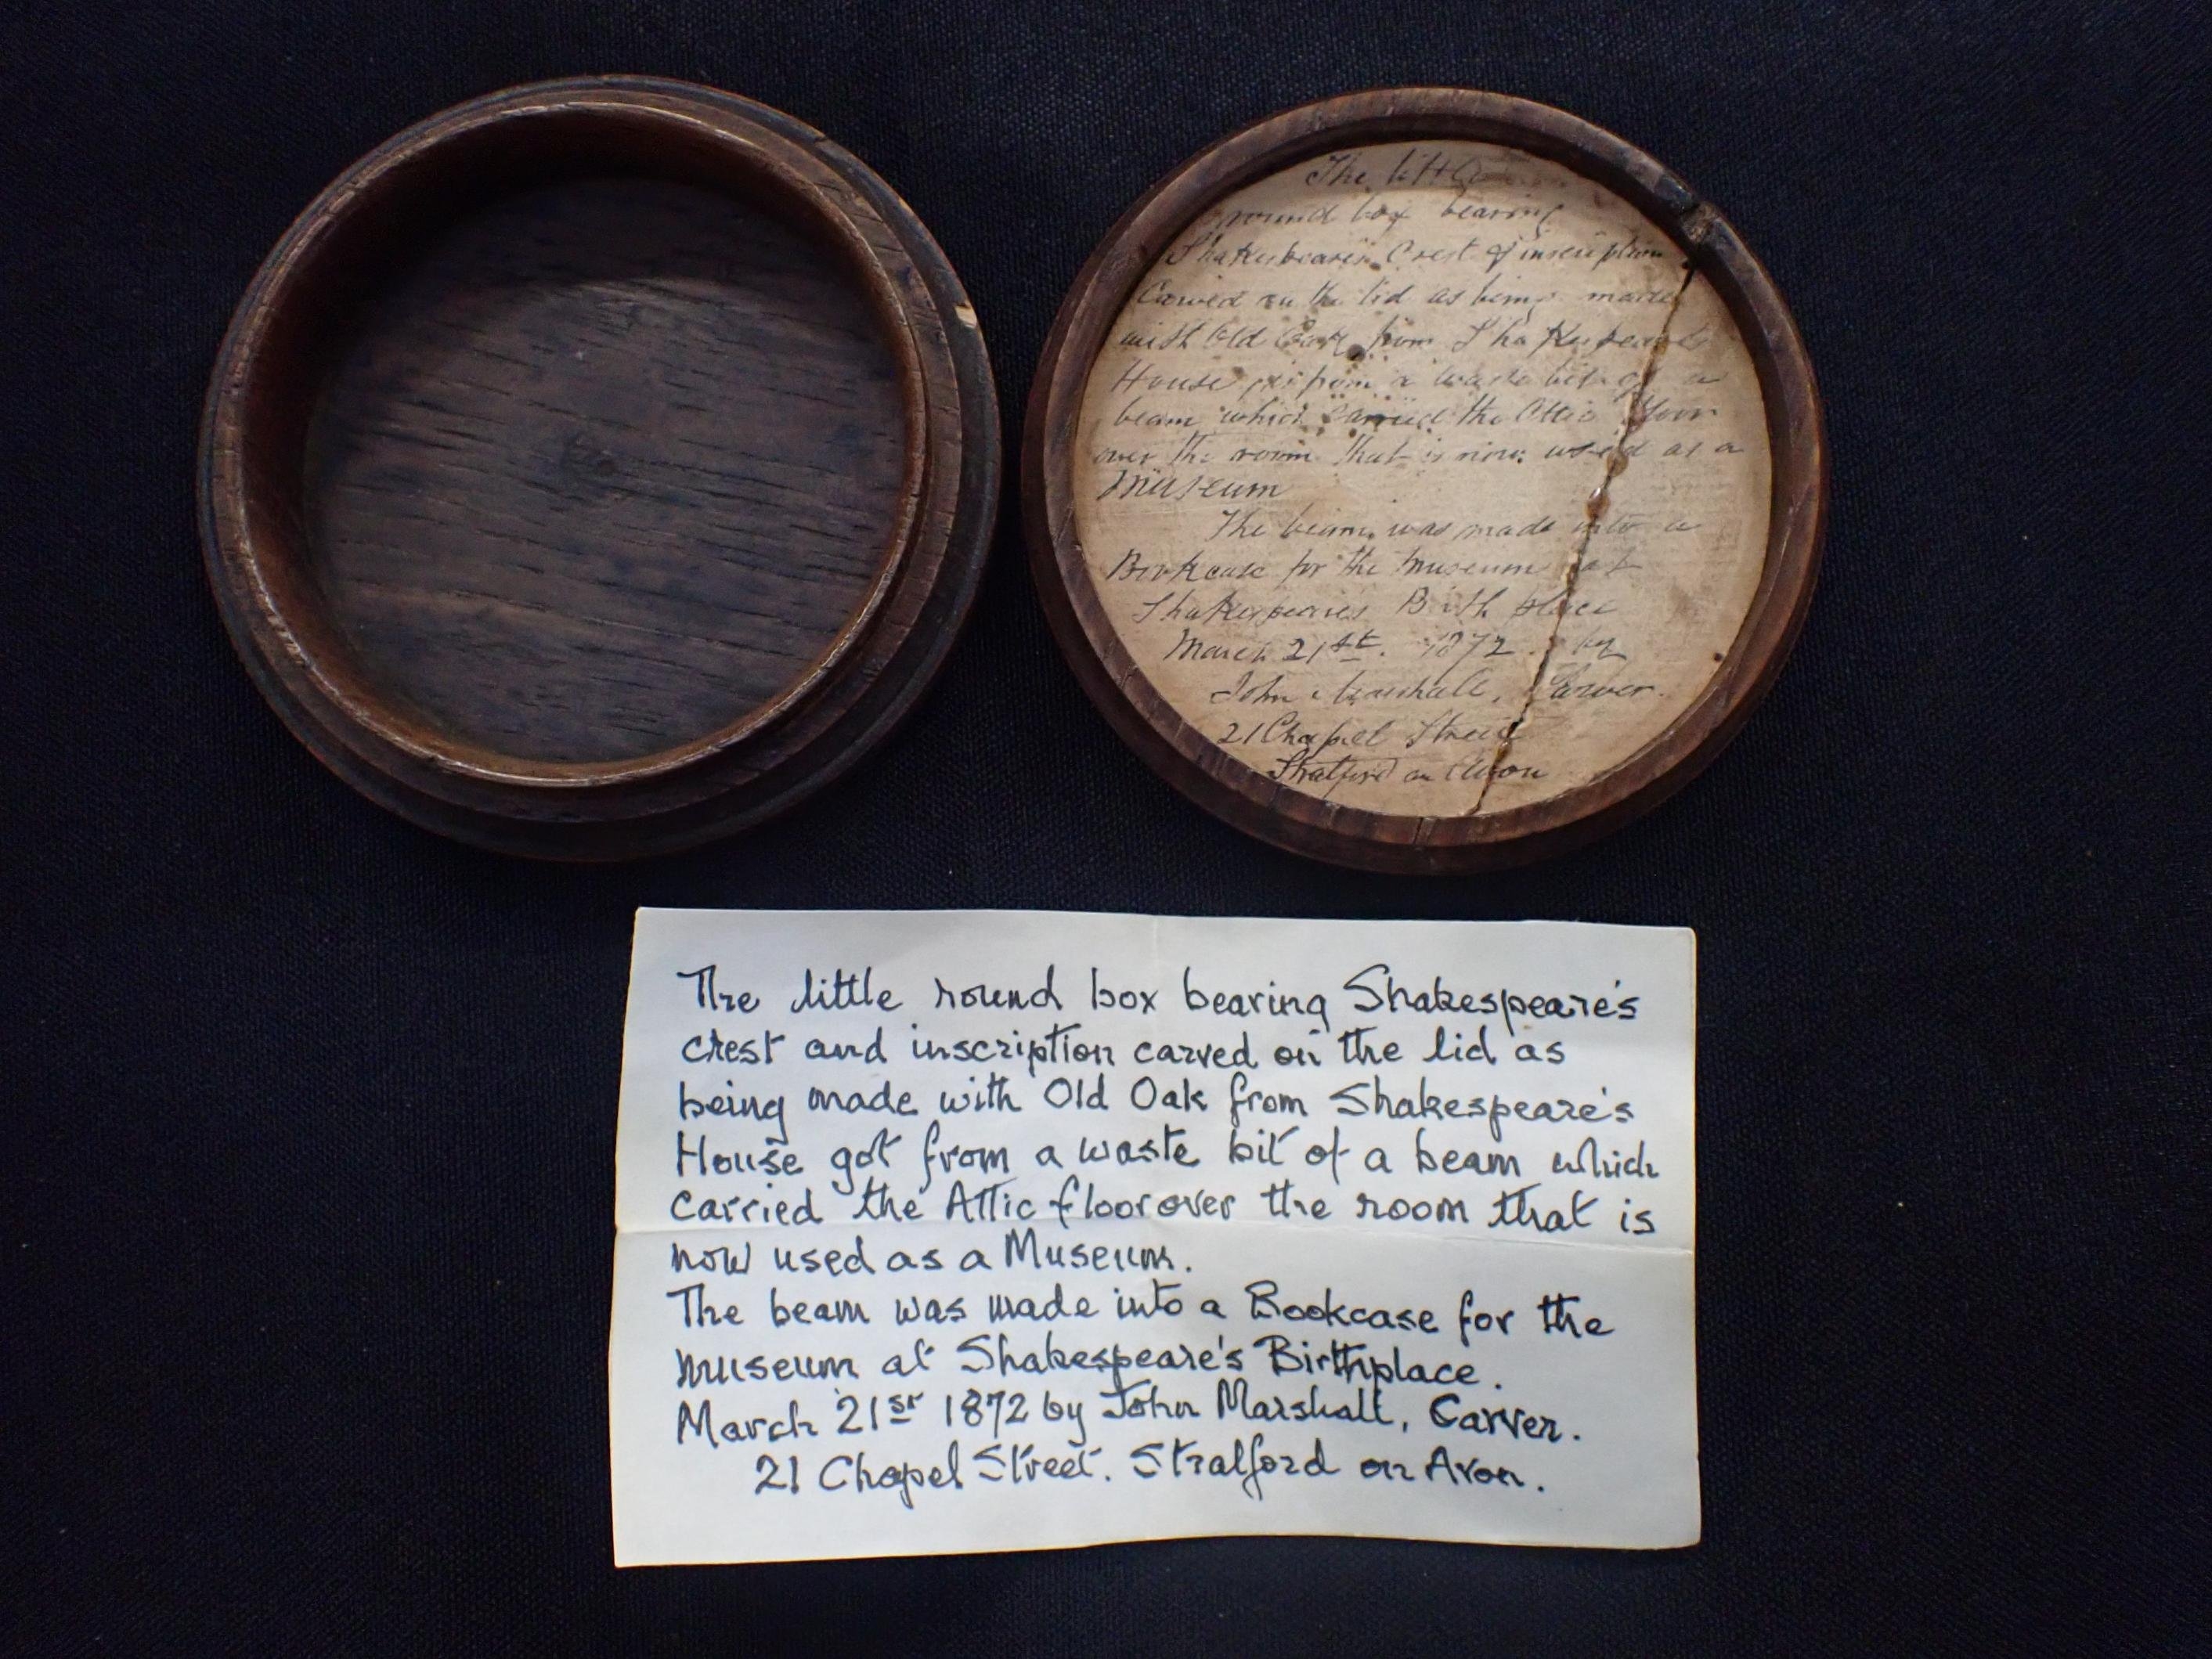 The little
round box bearing
Shakespeare's Crest & inscription
Carved on the lid as being made
with Old Oak from Shakespeare's
House got from a waste bit of a
beam which carried the Attic floor
over the room that is now used as a
Museum
The beam was made into a
Bookcase for the Museum at
Shakespeare's Birth place
March 21st. 1872. by
John Marshall, Carver.
21 Chapel Street
Stratford on Avon
The little round box bearing Shakespeare's
crest and inscription carved on the lid as
being made with Old Oak from Shakespeare's
House got from a waste bit of a beam which
carried the Attic floor over the room that is
now used as a Museum.
The beam was made into a Bookcase for the
museum at Shakespeare's Birthplace.
March 21st 1872 by John Marshall, Carver.
21 Chapel Street. Stratford on Avon.